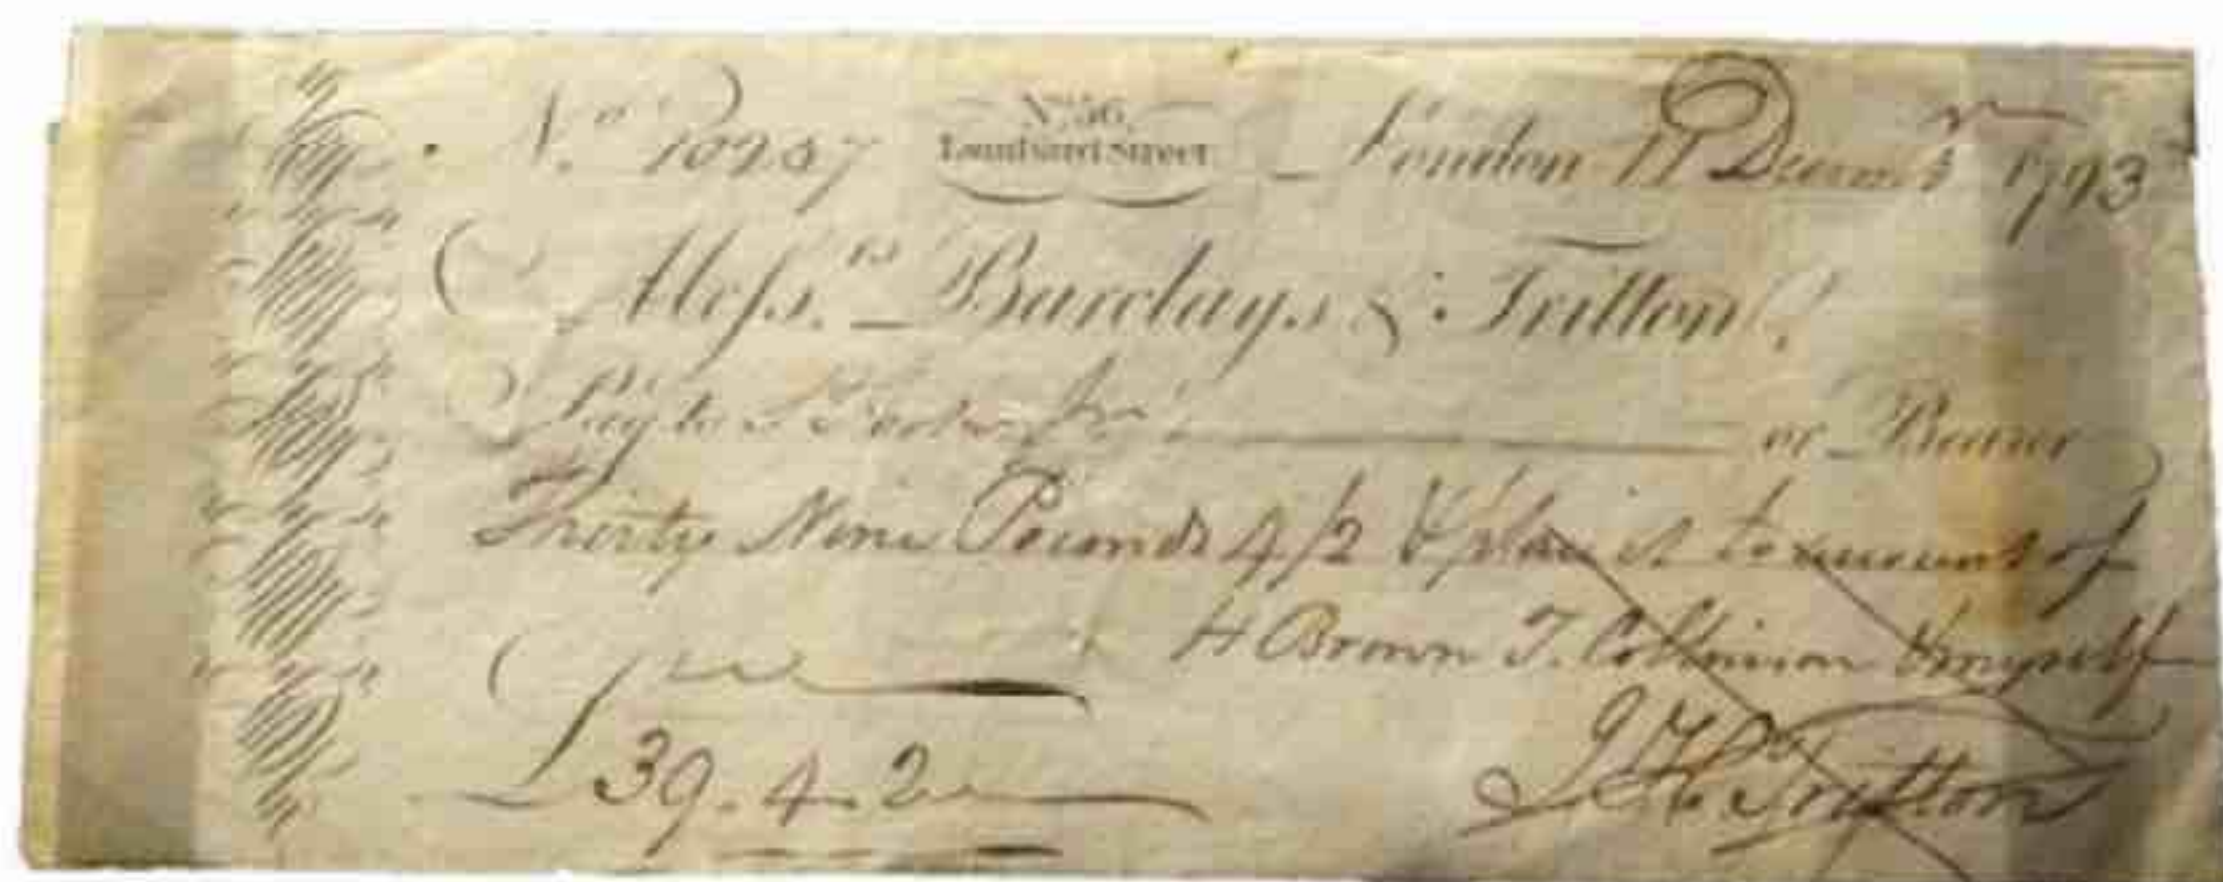 No. 10247 No. 56, Lombard Street London 11 Decembr 1793
Messrs. Barclays & Tritton,
Pay to or Bearer
Thirty Nine Pounds 4/2 & place it to account of
H Brown T. Collinson & myself
£39.4.2 Tritton